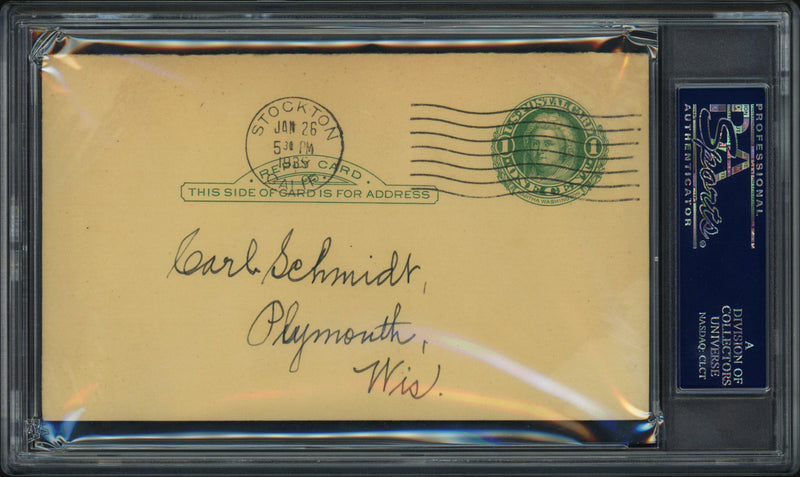 STOCKTON
JAN 26
5 30 PM
1935
CALIF.
REPLY CARD
THIS SIDE OF CARD IS FOR ADDRESS
U.S. POSTAGE
1 1
MARTHA WASHINGTON
Carl Schmidt,
Plymouth,
Wis.
PROFESSIONAL
PSA
Sports
AUTHENTICATOR
A
DIVISION OF
COLLECTORS
UNIVERSE
NASDAQ: CLCT